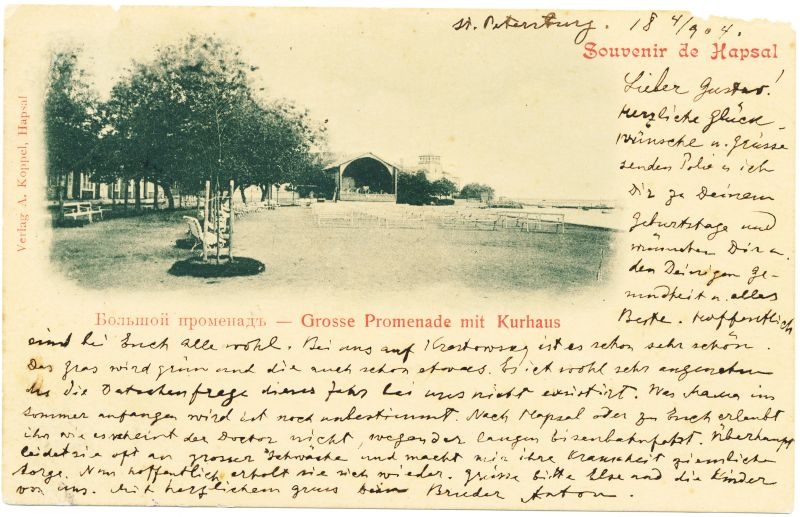 St. Petersburg. 18 4/904.
Souvenir de Hapsal
Verlag A. Koppel, Hapsal
Lieber Gustav!
Herzliche Glück
wünsche u. Grüsse
senden Polie u ich
Dir zu Deinem
Geburtstage und
wünschen Dir u.
den Deinigen Ge-
sundheit u. alles
Beste. Hoffentlich
Большой променадъ — Grosse Promenade mit Kurhaus
sind bei Euch alle wohl. Bei uns auf Krestowsky ist es schon sehr schön.
Das gras wird grün und die auch schon etwas. Es ist wohl sehr angenehm
das die Datschenfrage dieses Jahr bei uns nicht existirt. Was Mama im
Sommer anfangen wird ist noch unbestimmt. Nach Hapsal oder zu Euch erlaubt
ihr wie es scheint der Doctor nicht, wegen der langen Eisenbahnfahrt. Überhaupt
leidet sie oft an grosser Schwäche und macht mir ihre Krankheit ziemliche
Sorge. Nun hoffentlich erholt sie sich wieder. Grüsse bitte Else und die Kinder
von uns. Mit herzlichem gruss Dein Bruder Anton.